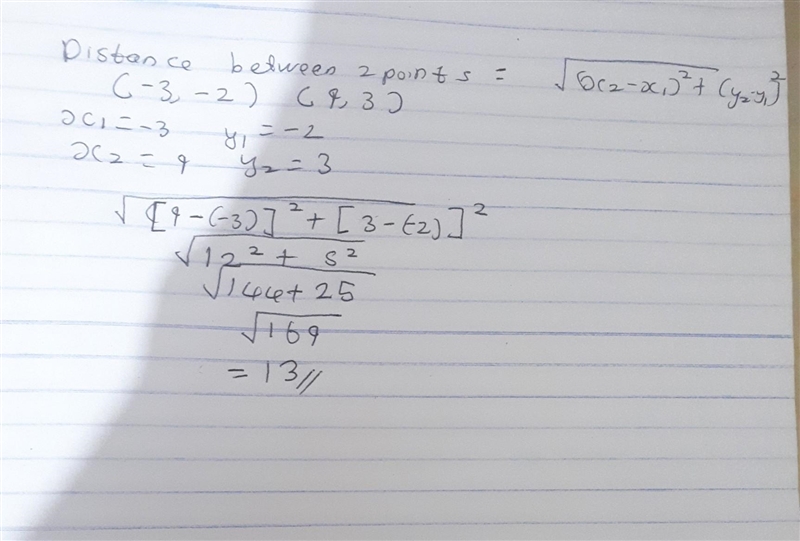 Distance between 2 points = √(x2-x1)²+(y2-y1)²
(-3, -2) (9, 3)
x1 = -3 y1 = -2
x2 = 9 y2 = 3
√[9-(-3)]²+[3-(-2)]²
√12² + 5²
√144+25
√169
= 13//